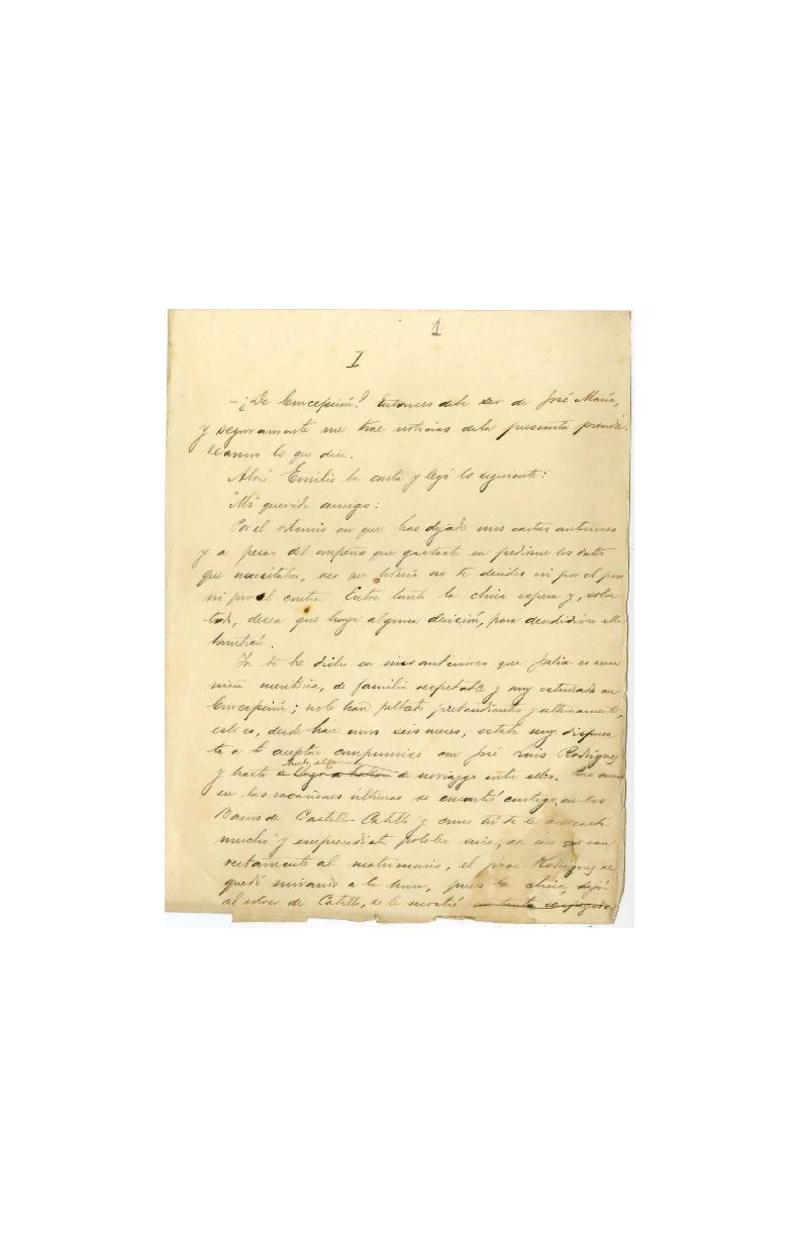 1
I
— ¿De Concepción? Entonces debe ser de José María,
y seguramente me trae noticias de la presunta prenda.
Veamos lo que dice.
Abrió Emilio la carta y leyó lo siguiente:
"Mi querido amigo:
Por el silencio en que has dejado mis cartas anteriores
y a pesar del empeño que gastaste en pedirme los datos
que necesitabas, veo que todavía no te decides ni por el pro
ni por el contra. Entre tanto la chica espera y, sobre
todo, desea que haya alguna decisión, para decidirse ella
también.
Ya te he dicho en mis anteriores que Julia es una
niña meritoria, de familia respetable y muy estimada en
Concepción; no le han faltado pretendientes y últimamente,
esto es, desde hace unos seis meses, estaba muy dispues
ta a aceptar compromiso con José Luis Rodríguez
y hasta hubo algo de noviazgo entre ellos.
en las vacaciones últimas se encontró contigo, en los
Baños de Catillo y como tú te le acercaste
mucho y emprendiste
rectamente al matrimonio, el pobre Rodríguez se
quedó mirando a la luna, pues la chica, dejó
al volver de Catillo, se le mostró